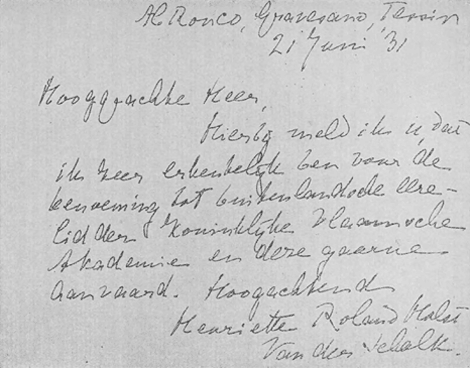 Al Ronco, Gravesano, Tessin
21 Juni '31
Hooggeachte Heer,
Hierbij meld ik u, dat
ik zeer erkentelijk ben voor de
benoeming tot buitenlandsche eere-
lid der Koninklijke Vlaamsche
Akademie en deze gaarne
aanvaard. Hoogachtend
Henriette Roland Holst
Van der Schalk.